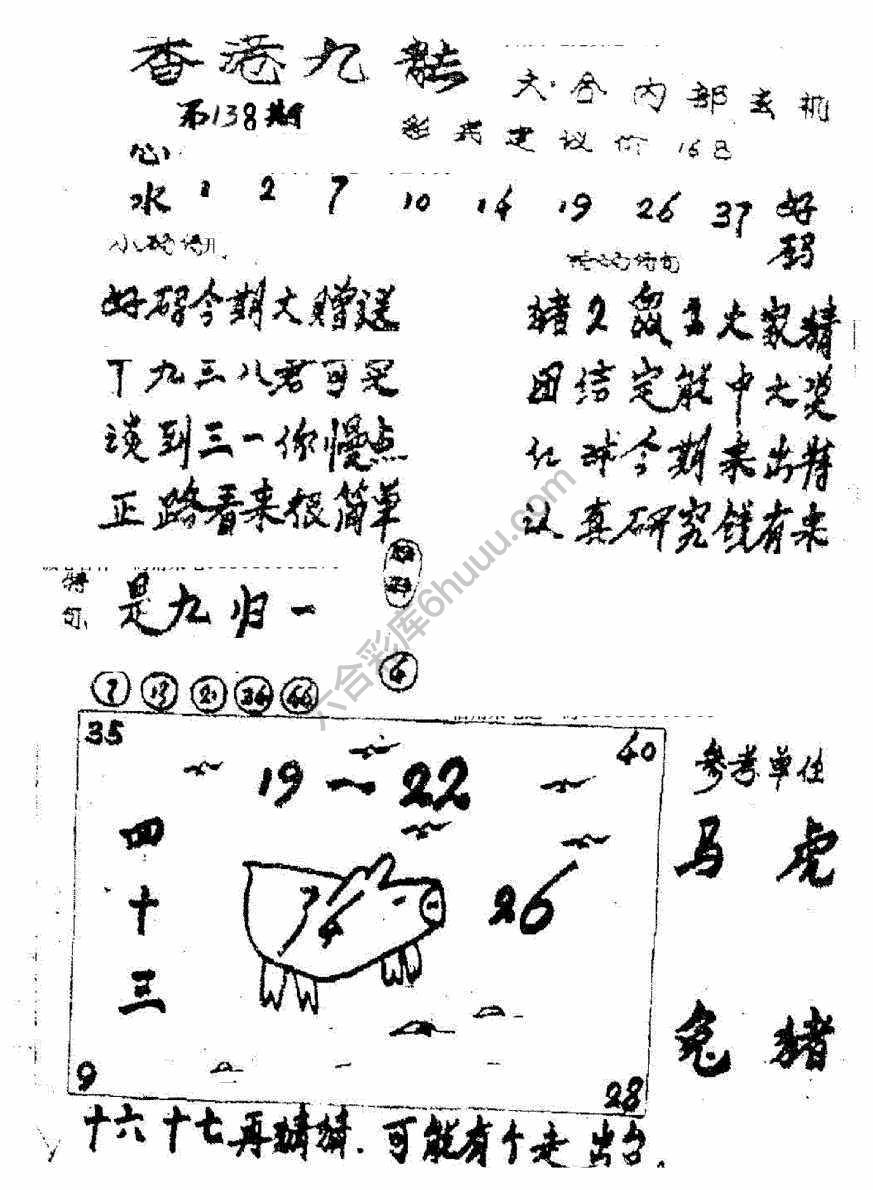 香港九龙
第138期
六合内部玄机
彩民建议价168
心水 1 2 7 10 14 19 26 37 好码
好码今期大赠送
丁九三八君可定
谈到三一你慢点
正路看来很简单
猪2 鼠3大家猜
团结定能中大奖
红球今期来出特
认真研究钱有来
特句
是九归一
7 19 21 34 46
4
35
40
19一22
四十三
34
26
9
28
参考单住
马 虎
兔 猪
十六十七再猜猜.可能有个走出台.
六合彩库6huuu.com